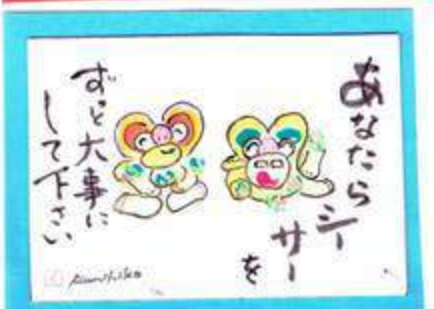 あなたらシーサーを
ずっと大事に
して下さい